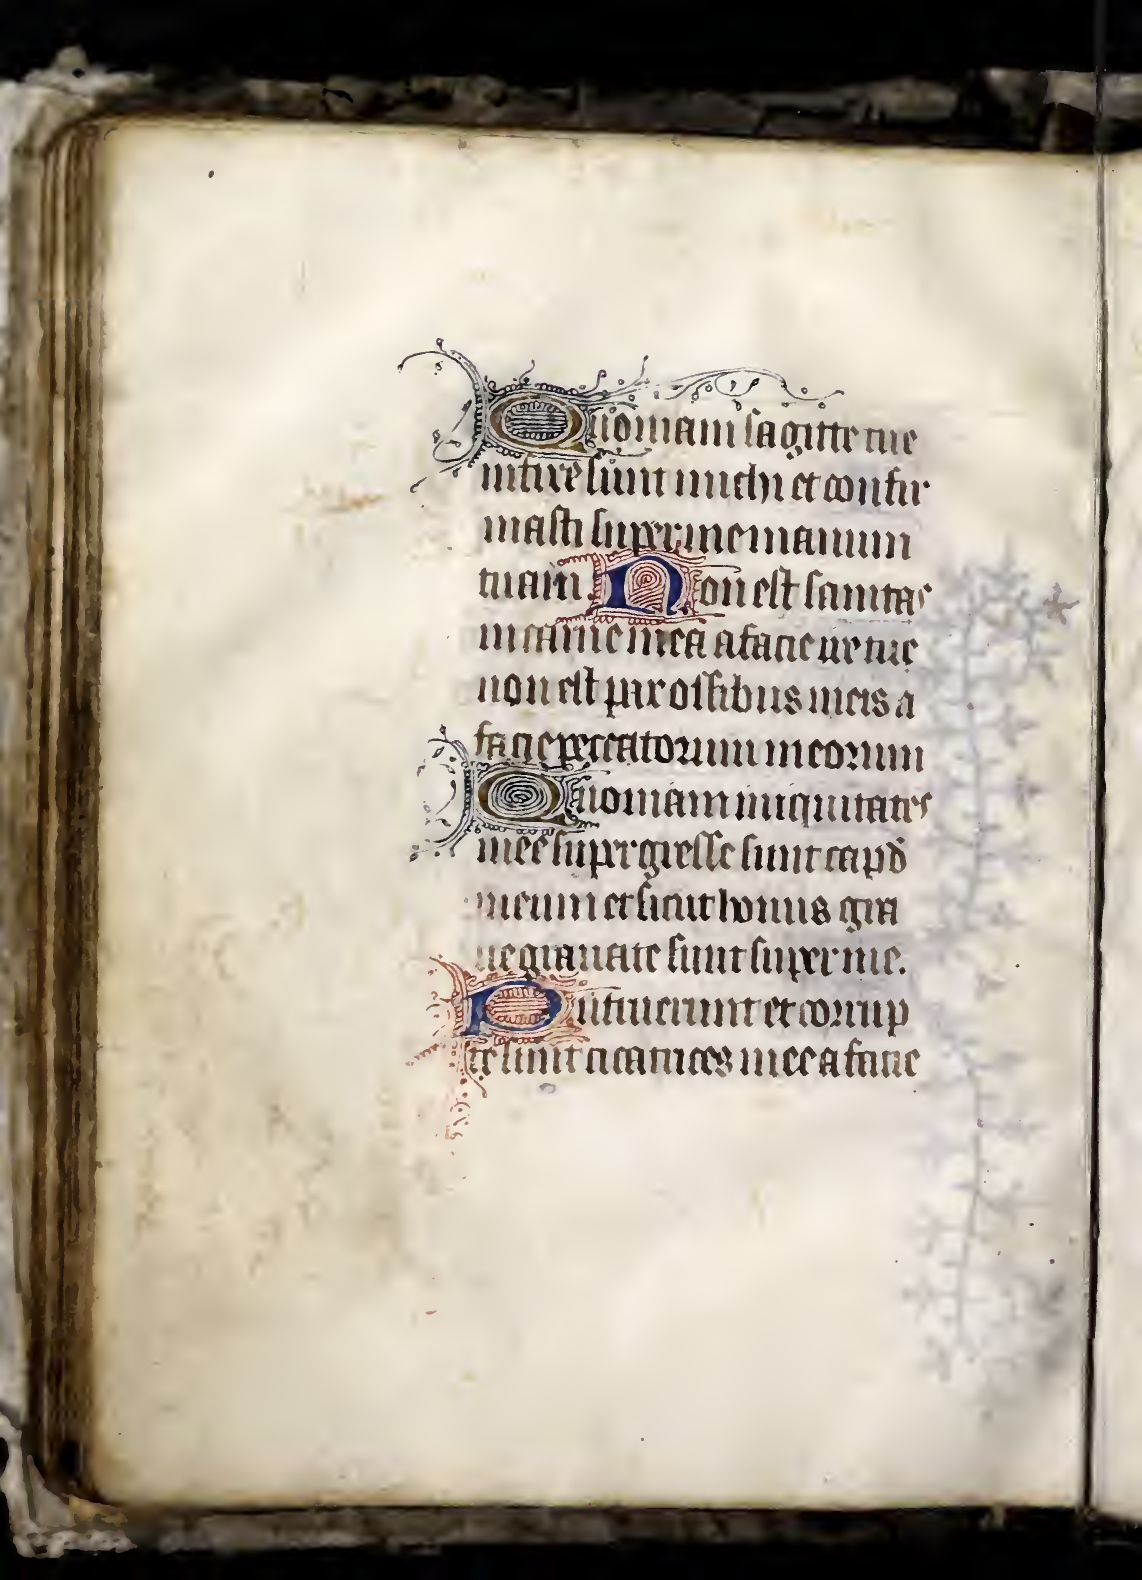 Quoniam sagitte tue
infixe sunt michi et confir
masti super me manum
tuam. Non est sanitas
in carne mea a facie ire tue
non est pax ossibus meis a
facie peccatorum meorum
Quoniam iniquitates
mee supergresse sunt capđ
meum et sicut honus gra
ue grauate sunt super me.
Putruerunt et corrup
te sunt cicatrices mee a facie